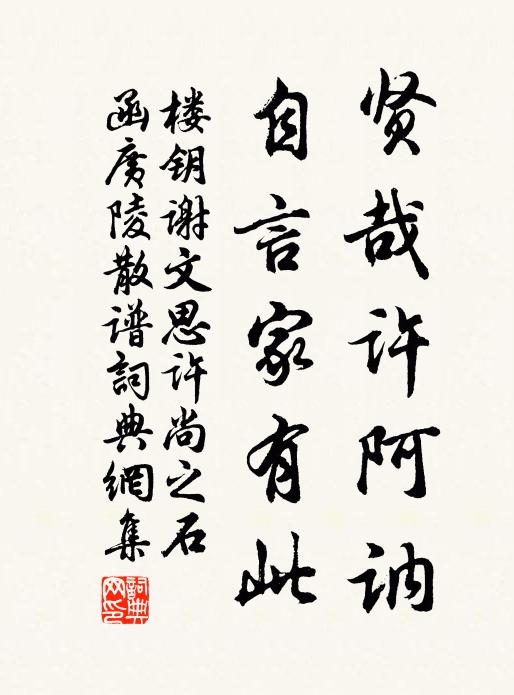 贤哉许阿讷
自言家有此
楼钥谢文思许尚之石
函广陵散谱詞典網集
詞典网印